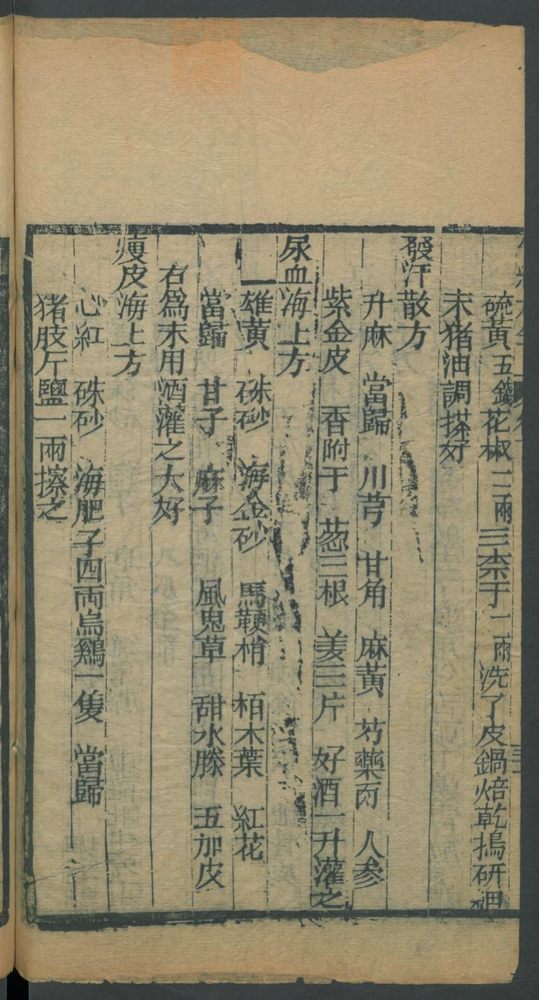 硫黃五錢花椒二兩三柰于一兩洗了皮鍋焙乾搗研細
末猪油調搽好
發汗散方
升麻　當歸　川芎　甘角　麻黃　芍藥　人參
紫金皮　香附于　葱三根　姜三片　好酒一升灌之
尿血海上方
雄黃　硃砂　海金砂　馬鞭梢　栢木葉　紅花
當歸　甘子　麻子　風鬼草　甜水滕　五加皮
右爲末用酒灌之大好
瘦皮海上方
心紅　硃砂　海肥子四兩烏鷄一隻　當歸
猪肢斤鹽一兩擦之